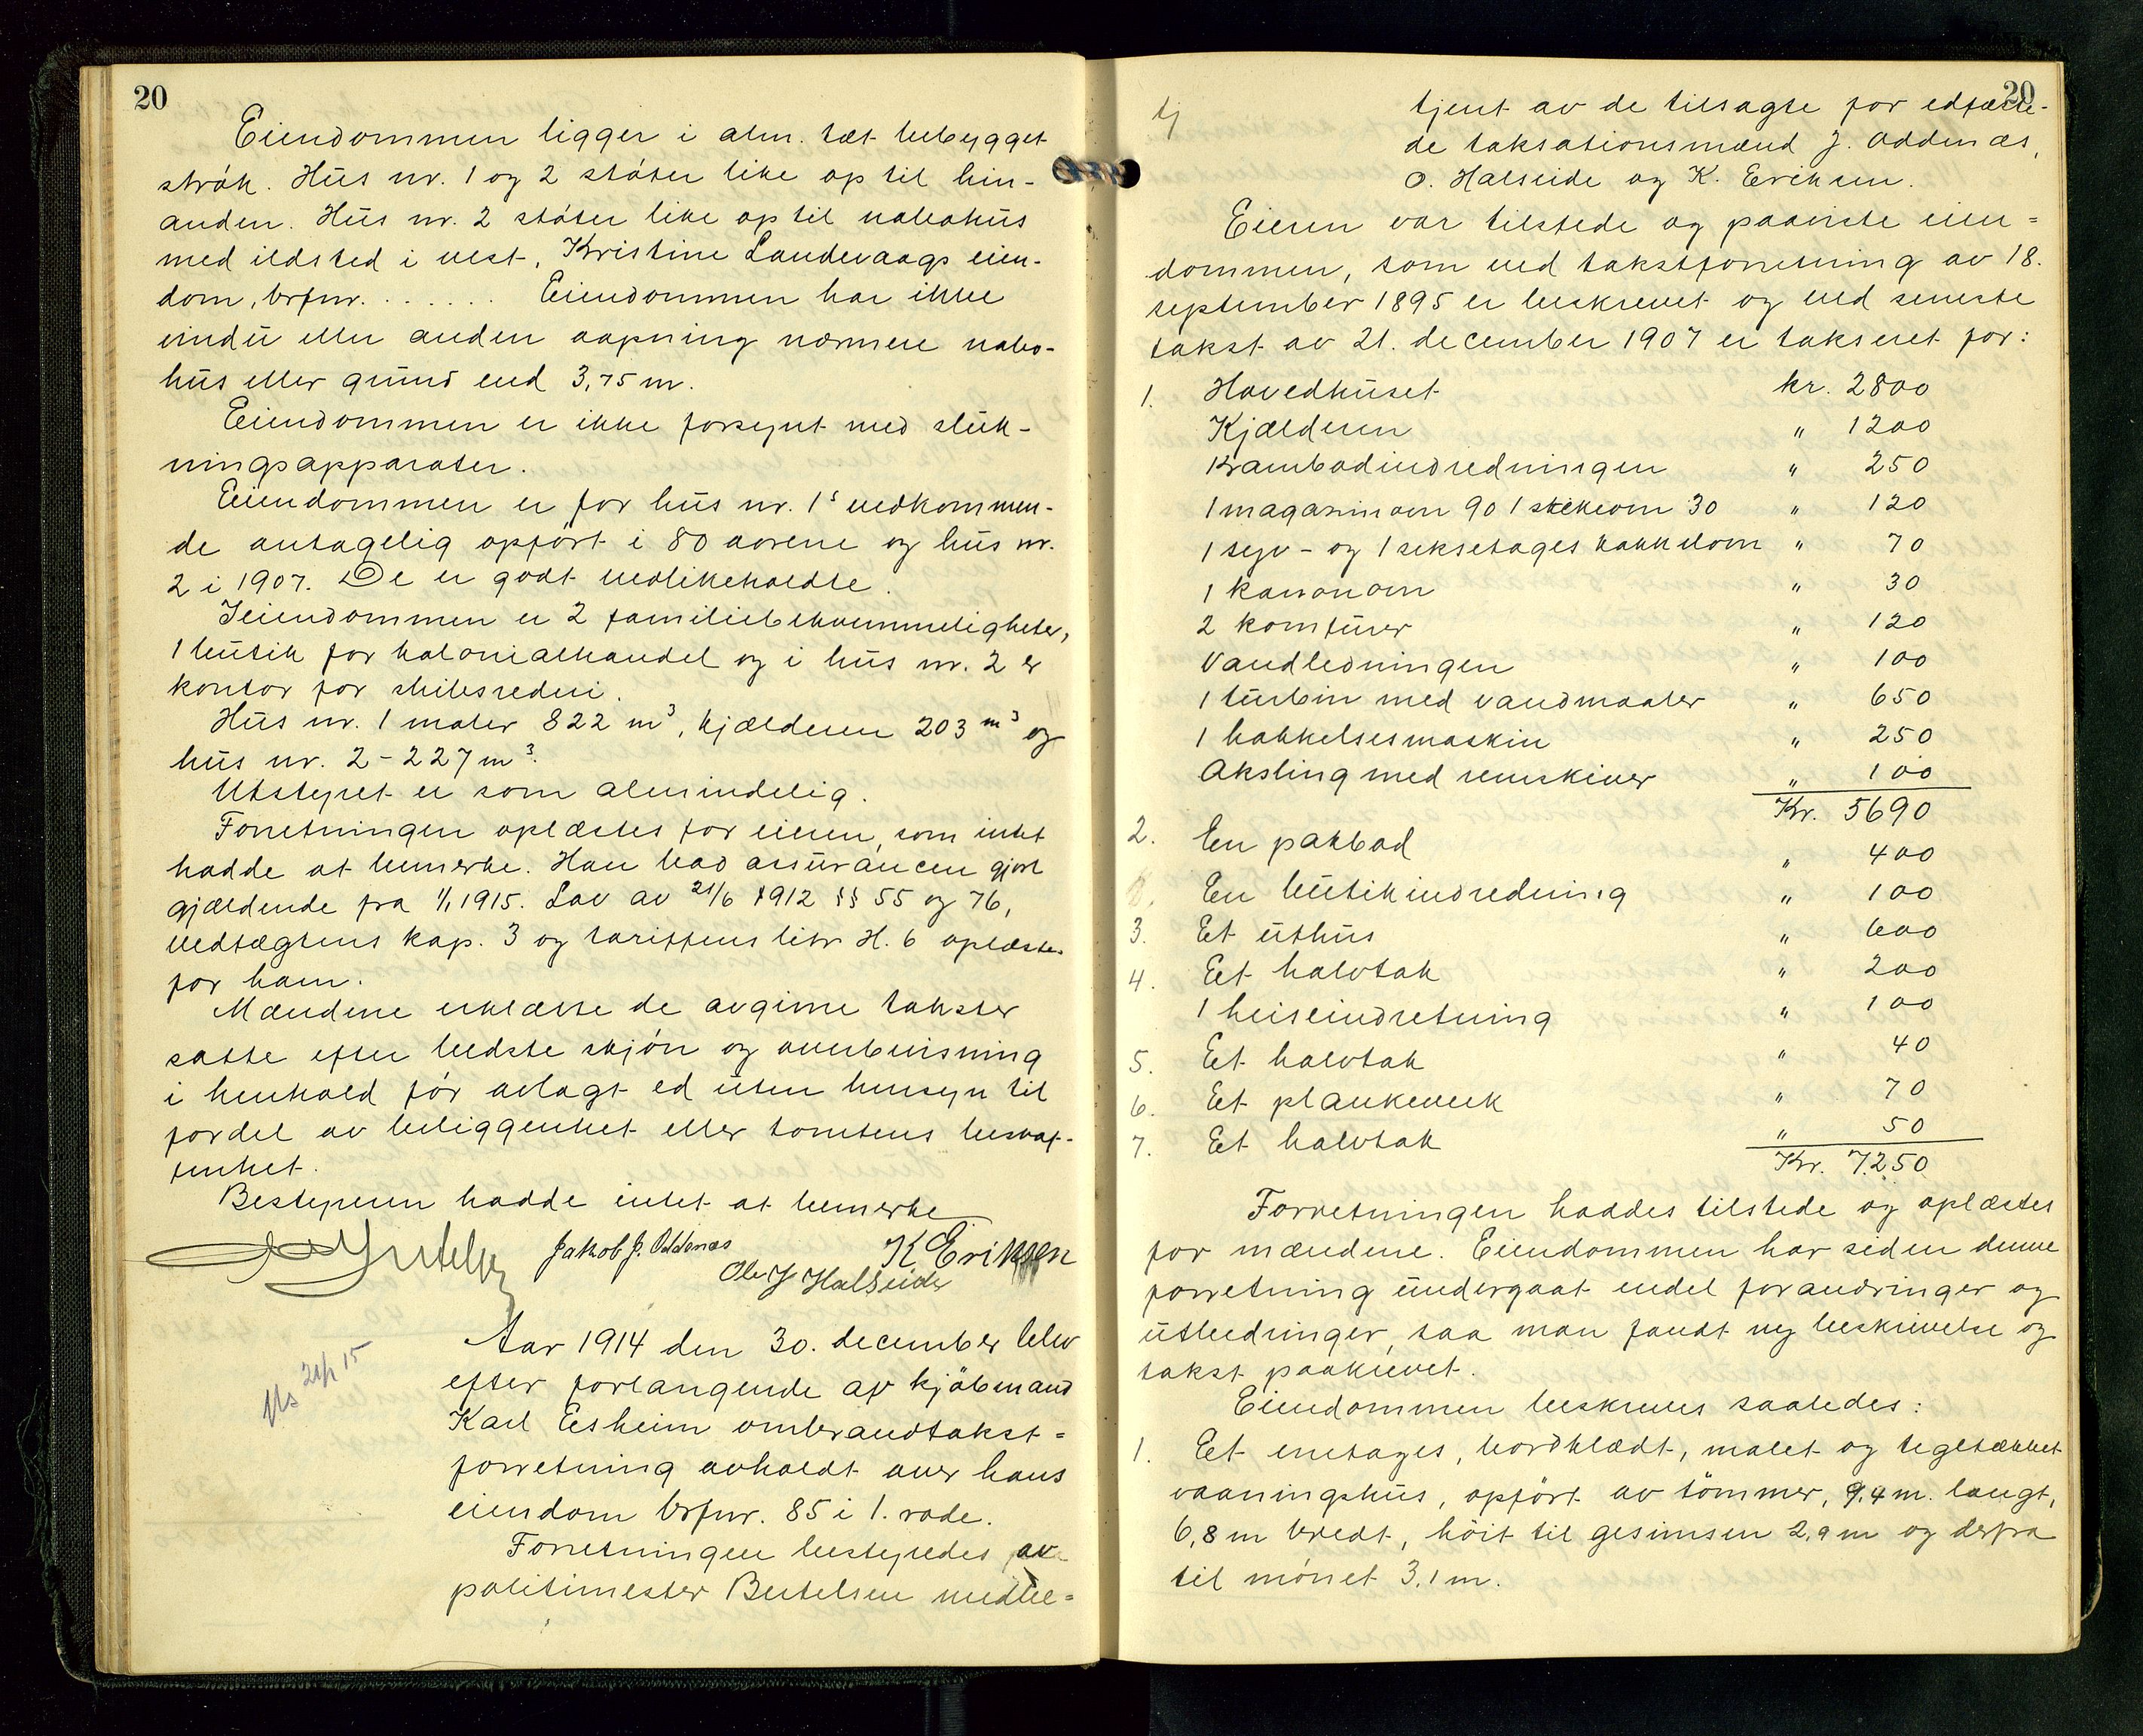 20
Eiendommen ligger i alm. tæt bebygget
strök. Hus nr. 1 og 2 stöter like op til hin-
anden. Hus nr. 2 stöter like op til nabohus
med ildsted i vest, Kristine Landevaags eien-
dom, brfnr. . . . . . . Eiendommen har ikke
vindu eller anden aapning nærmere nabo-
hus eller grund end 3,75 m.
Eiendommen er ikke forsynt med sluk-
ningsapparater.
Eiendommen er for hus nr. 1s vedkommen-
de antagelig opfört i 80 aarene og hus nr.
2 i 1907. De er godt vedlikeholdte.
I eiendommen er 2 familiebekvemmeligheter,
1 butik for kolonialhandel og i hus nr. 2 er
kontor for skibsrederi.
Hus nr. 1 maler 822 m³, kjælderen 203 m³ og
hus nr. 2 - 227 m³.
Utstyret er som almindelig.
Forretningen oplæstes for eieren, som intet
hadde at bemerke. Han bad assurancen gjort
gjældende fra 1/1 1915. Lov av 21/6 1912 §§ 55 og 76,
vedtægtens kap. 3 og tariffens litr H. 6 oplæstes
for ham.
Mændene erklærte de avgivne takster
satte efter bedste skjön og overbevisning
i henhold för avlagt ed uten hensyn til
fordel av beliggenhet eller tomtens beskaf-
fenhet.
Bestyreren hadde intet at bemerke
Jakob J. Oddenæs K Eriksen
Ole J Halseide
Aar 1914 den 30. december blev
efter forlangende af kjöbmand
Karl Eesheim ombrandtakst-
forretning avholdt over hans
eiendom brfnr. 85 i 1. rode.
Forretningen bestyredes av
politimester Bertelsen medbe-
20
tj
tjent av de tilsagte for edfæste-
de taksationsmænd J. Oddenæs,
O. Halseide og K. Eriksen.
Eieren var tilstede og paaviste eien-
dommen, som ved takstforretning av 18.
september 1895 er beskrevet og ved seneste
takst av 21. december 1907 er takseret for:
1. Hovedhuset kr. 2800
Kjælderen " 1200
Krambodindredningen " 250
1 magasinovn 90 1 stekeovn 30 " 120
1 syv- og 1 seksetages kakkelovn " 70
1 kanonovn " 30
2 komfurer " 120
Vandledningen " 100
1 turbin med vandmaaler " 650
1 hakkelsesmaskin " 250
Aksling med remskiver " 100
Kr. 5690
2. En pakbod " 400
En butikindredning " 100
3. Et uthus " 600
4. Et halvtak " 200
1 heiseindretning " 100
5. Et halvtak " 40
6. Et plankeverk " 70
7. Et halvtak " 50
Kr. 7250
Forretningen haddes tilstede og oplæstes
for mændene. Eiendommen har siden denne
forretning undergaat endel forandringer og
utbedringer, saa man fandt ny beskrivelse og
takst paakrævet.
Eiendommen beskrives saaledes:
1. Et enetages, bordklædt, malet og tegltækket
vaaningshus, opfört av tömmer, 9,4 m. langt,
6,8 m bredt, höit til gesimsen 2,9 m og derfra
til mönet 3,1 m.